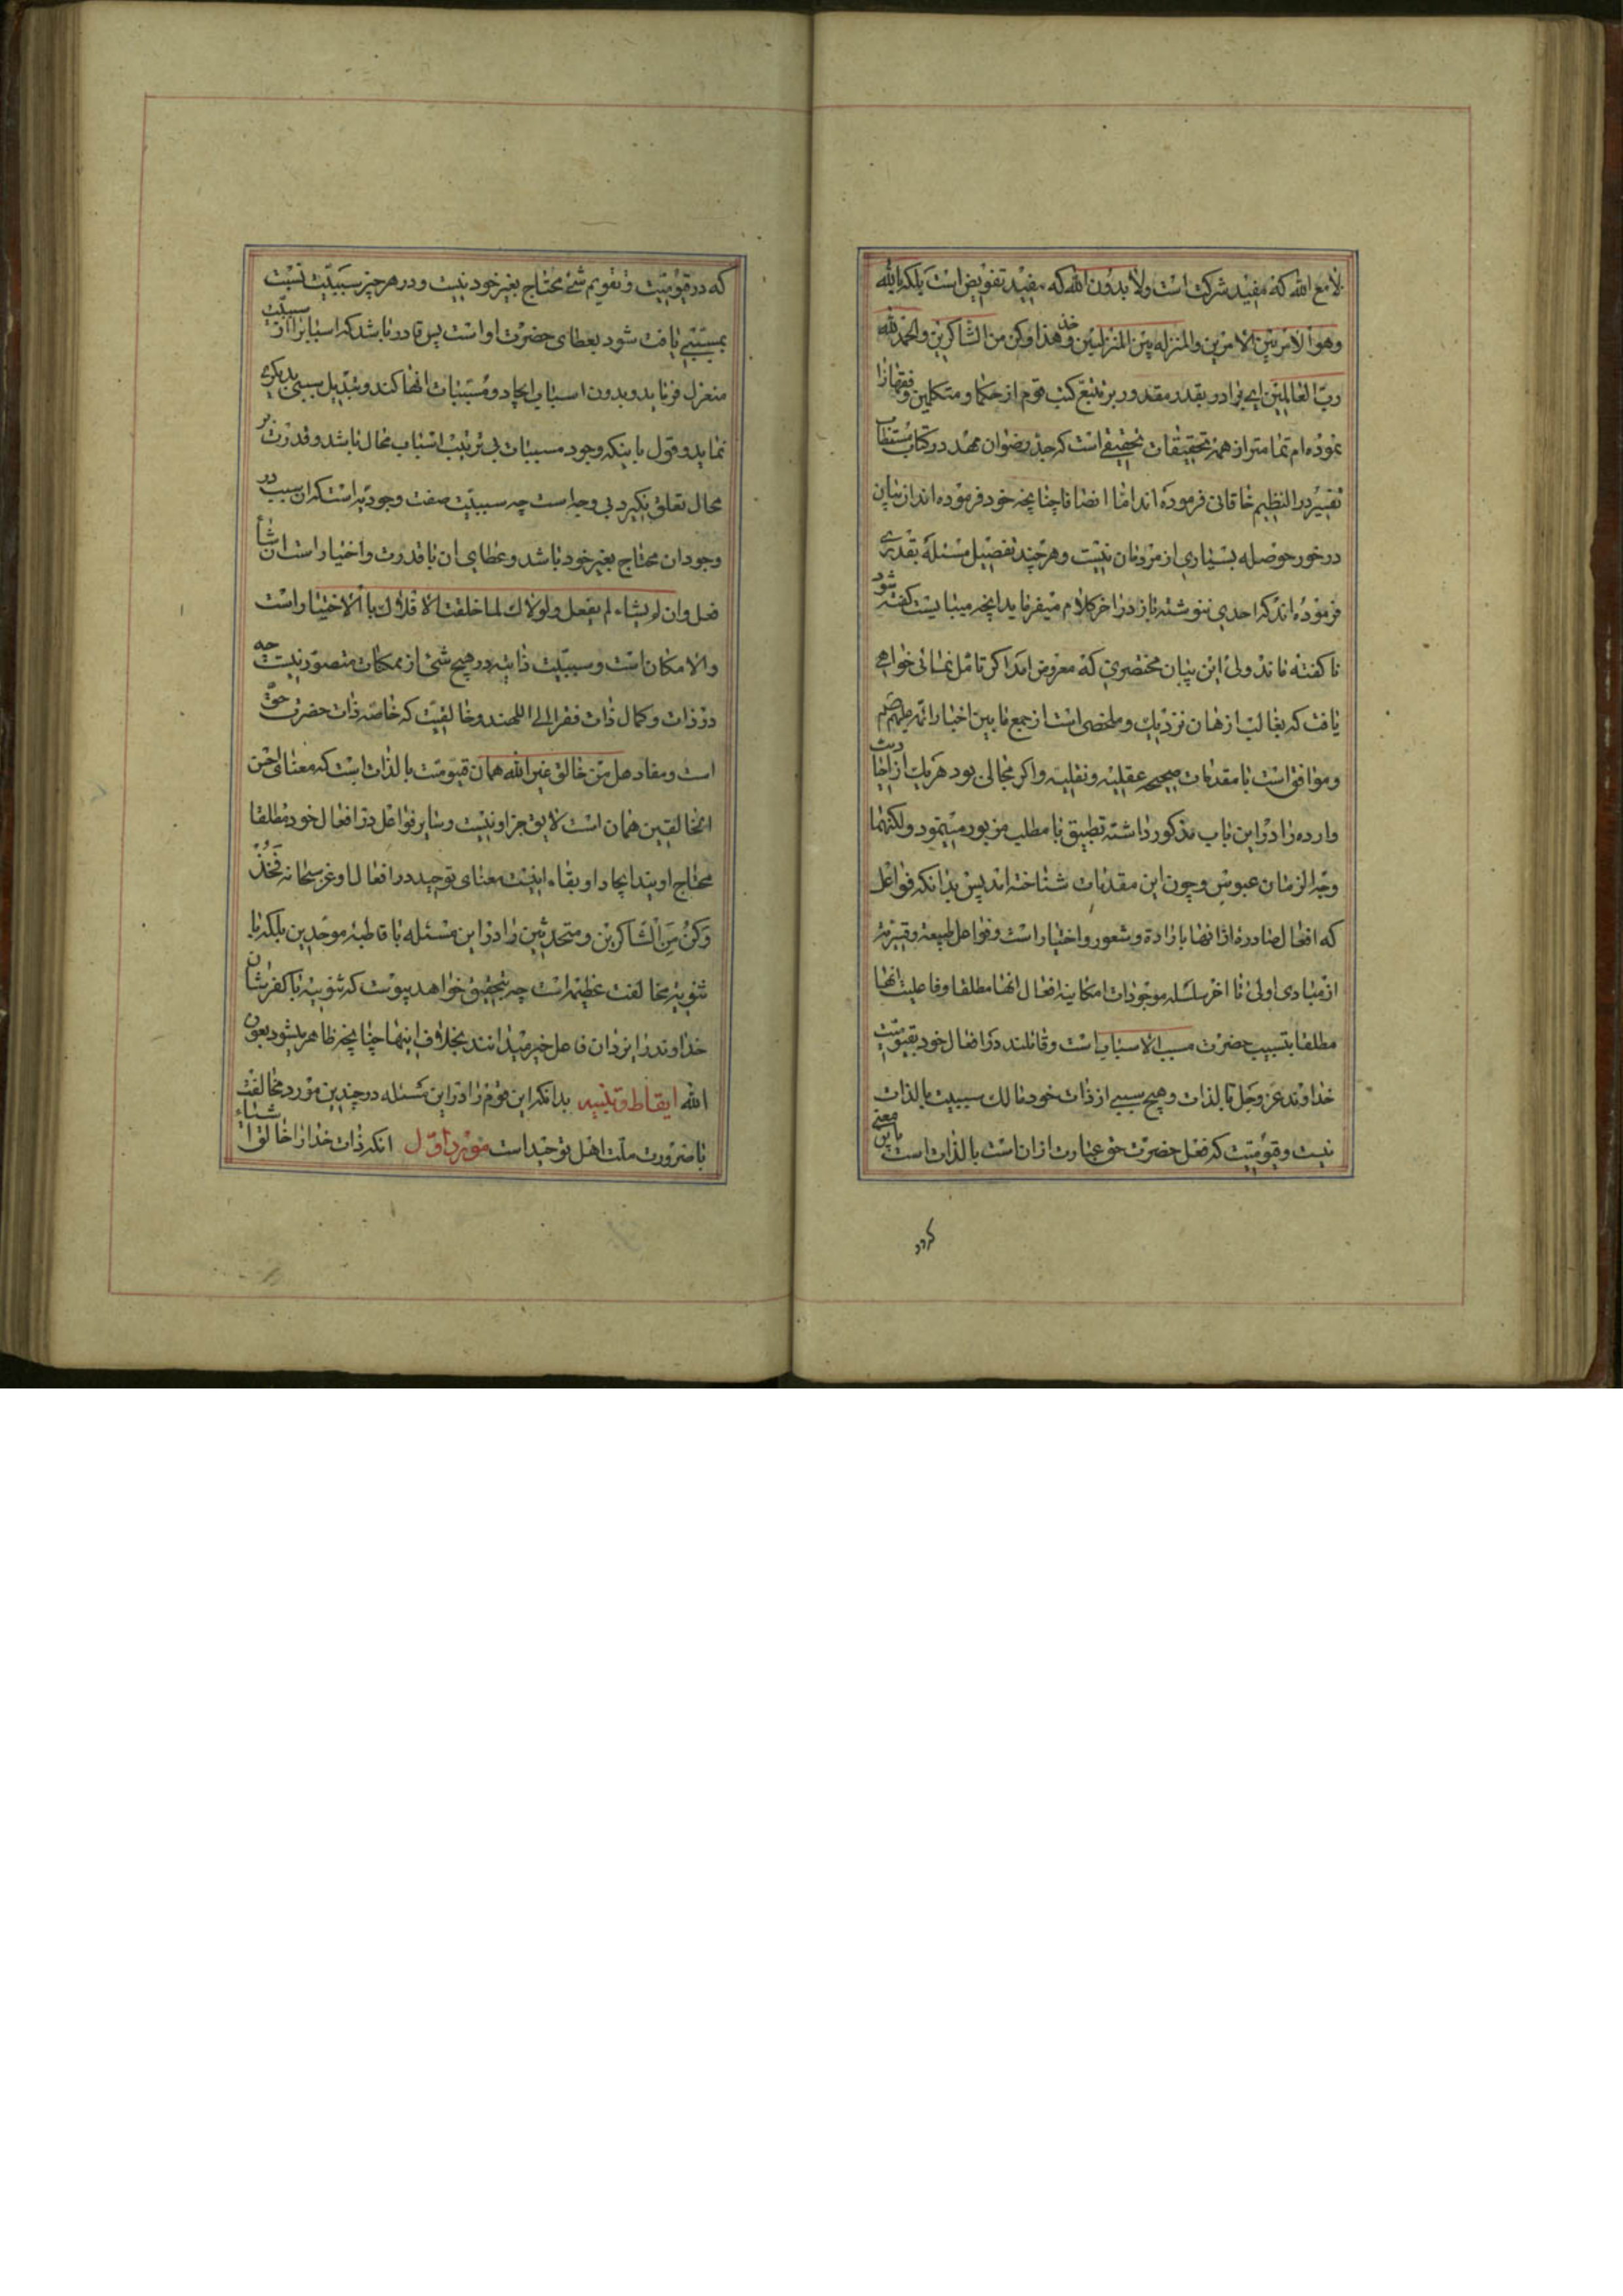 لا مع الله که مفید شرکت است ولا بدون الله که مفید تفویض است بلکه بالله
وهو الامر بین الامرین والمنزلة بین المنزلتین خذ هذا وکن من الشاکرین والحمد لله
رب العالمین ای برادر بقدر مقدور بر تتبع کتب قوم از حکما و متکلمین و فقها را
نموده‌ام تمامتر از همه تحقیقات تحقیقی است که جد رضوان مهد در کتاب مستطاب
تفسیر در النظیم خاقانی فرموده‌اند اما انصافا چنانچه خود فرموده‌اند از بیان
در خور حوصله بسیاری از مردمان نیست و هر چند تفصیل مسئله بقدری
فرموده‌اند که احدی ننوشته باز در اخر کلام میفرماید انچه میبایست گفته شود
ناگفته ماند ولی این بیان مختصری که معروض امد اگر تامل نمائی خواهی
یافت که بغالب اذهان نزدیک و ملخصی است از جمع مابین اخبار ائمه علیهم صلم
و موافق است با مقدمات صحیحه عقلیه و نقلیه و اگر مجالی بود هر یک از احادیث
وارده را در این باب مذکور داشته تطبیق با مطلب مزبور مینمود ولکنما
وجه الزمان عبوس و چون این مقدمات شناخته اند پس بدانکه فواعل
که افعال صادره از انها باراده و شعور و اختیار است و فواعل طبیعیه و قسریه
از مبادی اولی تا اخر سلسله موجودات امکانیه افعال انها مطلقا و فاعلیت انها
مطلقا بتسبیب حضرت مسبب الاسباب است و قائلند در افعال خود بقیومیت
خداوند عز وجل بالذات و هیچ سببی از ذات خود مالک سببیت بالذات
نیست و قیومیت که فعل حضرت حق عبارت از ان است بالذات است باین معنی
گردد
که در قیومیت و تقویم شئ محتاج بغیر خود نیست و در هر چیز سببیت نسبت
بمسببی یافت شود بعطای حضرت او است پس قادر باشد که اسباب را از سببیت
منعزل فرماید و بدون اسباب ایجاد مسببات انها کند و تبدیل سببی بدیگری
نماید و قول باینکه وجود مسببات بی ترتیب اسباب محال باشد و قدرت بر
محال تعلق نگیرد بی وجه است چه سببیت صفت وجودیه است که ان سبب در
وجود ان محتاج بغیر خود باشد و عطای ان با قدرت و اختیار است ان شاء
فعل وان لم یشاء لم یفعل و لولاک لما خلقت الافلاک بالاختیار است
والامکان است و سببیت ذاتیه در هیچ شئ از ممکنات متصور نیست چه
در ذات و کمال ذات فقرا الی اللهند و خالقیت که خاصه ذات حضرت حق
است و مفاد هل من خالق غیر الله همان قیومیت بالذات است که معنای احسن
الخالقین همان است لایق جز او نیست و سایر فواعل در افعال خود مطلقا
محتاج اویند ایجادا و بقاء اینست معنای توحید در افعال او عز سبحانه فخذ
وکن من الشاکرین و متحدثین را در این مسئله با قاطبه موحدین بلکه با
ثنویه مخالفت عظیمه است چه بتحقیق خواهد پیوست که ثنویه با کفرشان
خداوند را یزدان فاعل خیر میدانند بخلاف اینها چنانچه ظاهر میشود بعون
الله ایقاظ و تنبیه بدانکه این قوم را در این مسئله در چندین مورد مخالفت
با ضرورت ملت اهل توحید است مورد اول انکه ذات خدا را خالق اشیاء